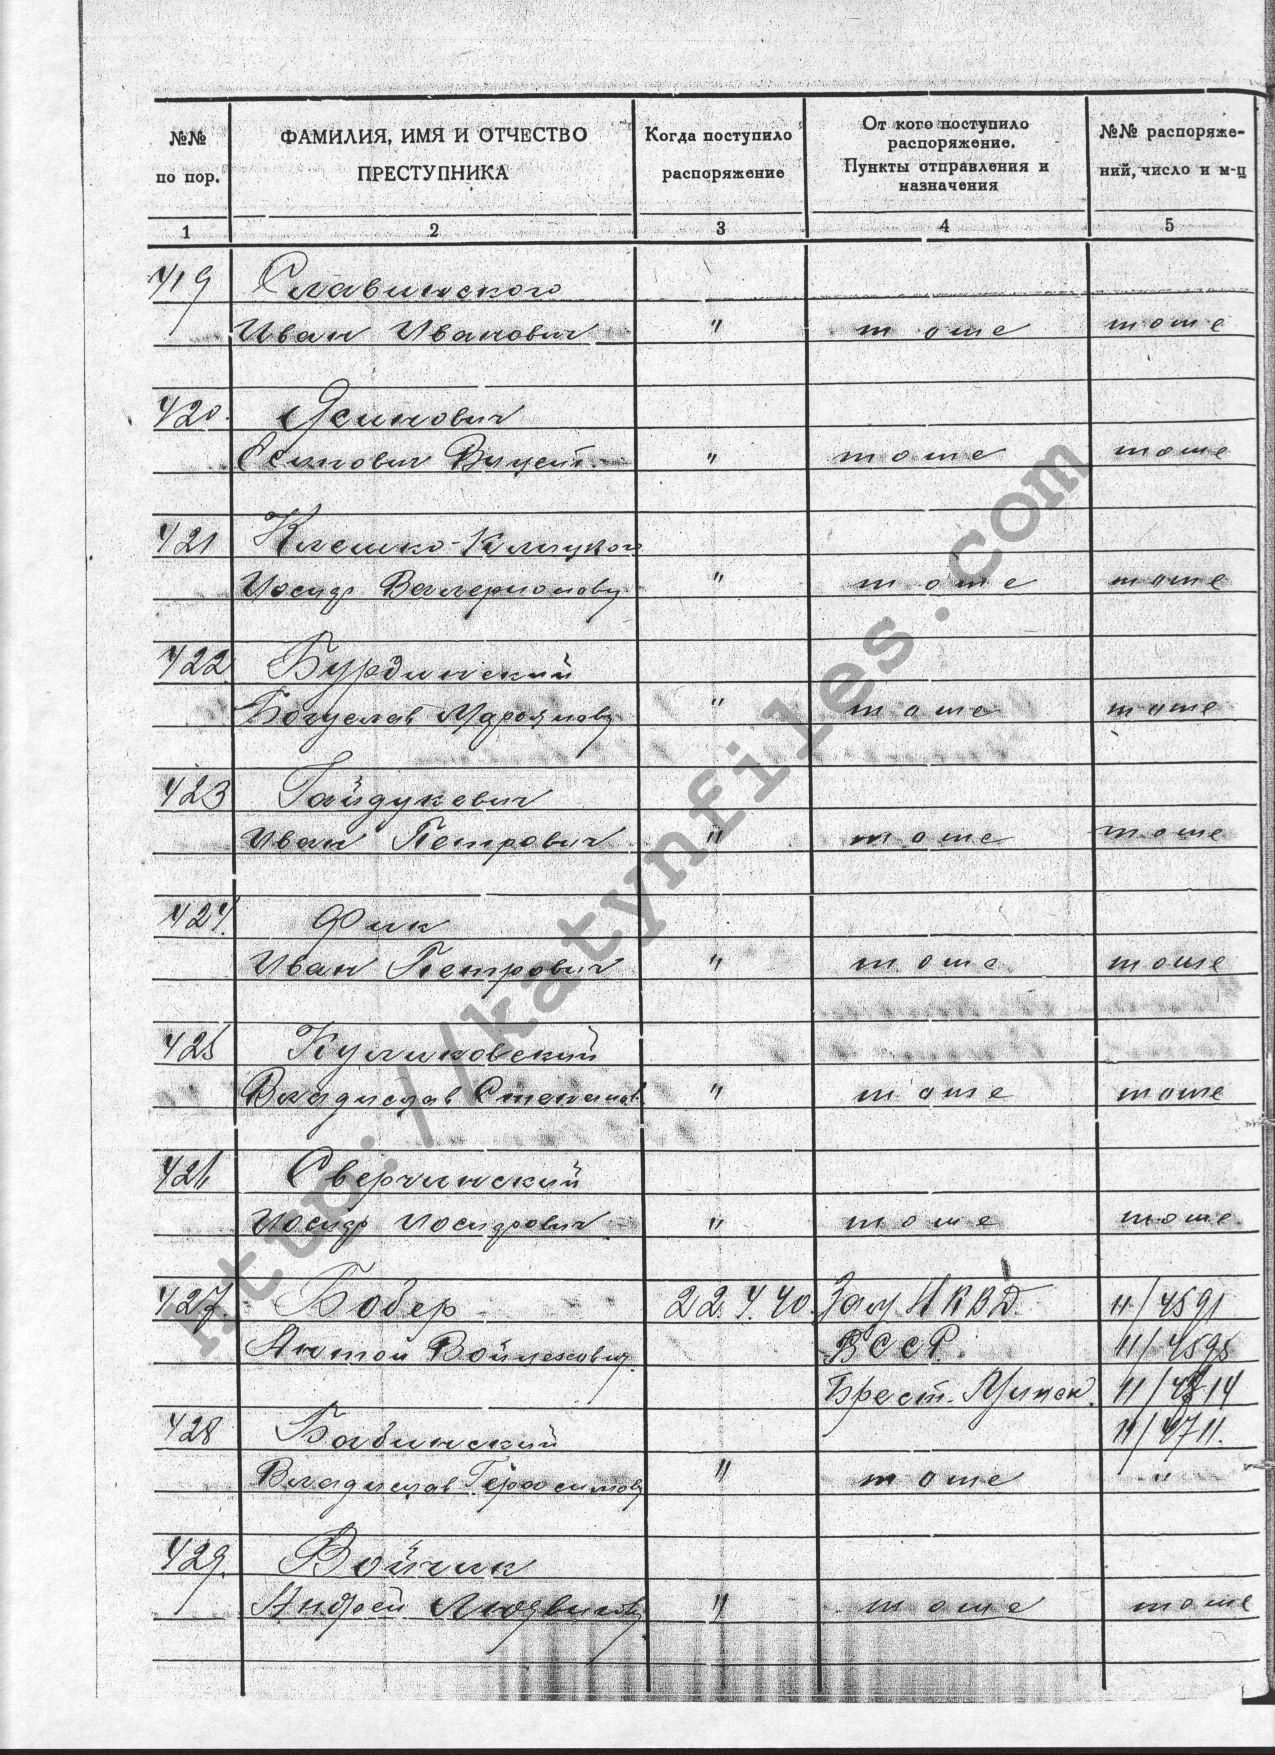 №№ по пор.
ФАМИЛИЯ, ИМЯ И ОТЧЕСТВО ПРЕСТУПНИКА
Когда поступило распоряжение
От кого поступило распоряжение. Пункты отправления и назначения
№№ распоряжений, число и м-ц
1 2 3 4 5
419 Славинского
Иван Иванович " тоше тоше
420. Ясинович
" тоше тоше
421 Клешко-Клицког
Иосиф Валерионов " тоше тоше
422 Бурдинский
Богуслав " тоше тоше
423 Гайдукевич
Иван Петрович " тоше тоше
424. Фик
Иван Петрович " тоше тоше
425 Куликовский
Владислав Степанов " тоше тоше
426 Сверчинский
Иосиф Иосифович " тоше тоше
427 Бобер 22.4.40. Зам НКВД 11/4591
Антон Войцехович. БССР. 11/4595
Брест. Минск. 11/4714
428 Бабинский 11/4711.
Владислав Герасимов " тоше "
429. Войчик
Андрей Людвигов " тоше тоше
http://katynfiles.com